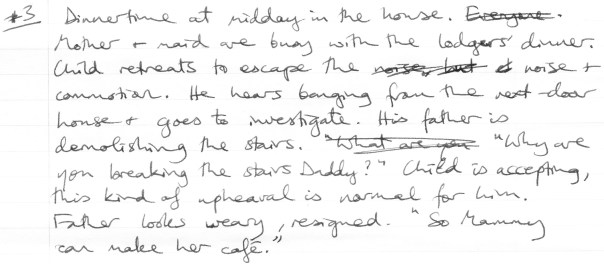 #3 Dinnertime at midday in the house. Everyone.
Mother + maid are busy with the lodgers' dinner.
Child retreats to escape the noise, but d noise +
commotion. He hears banging from the next-door
house + goes to investigate. His father is
demolishing the stairs. "What are you "Why are
you breaking the stairs Daddy?" Child is accepting,
this kind of upheaval is normal for him.
Father looks weary, resigned. "So Mammy
can make her café."